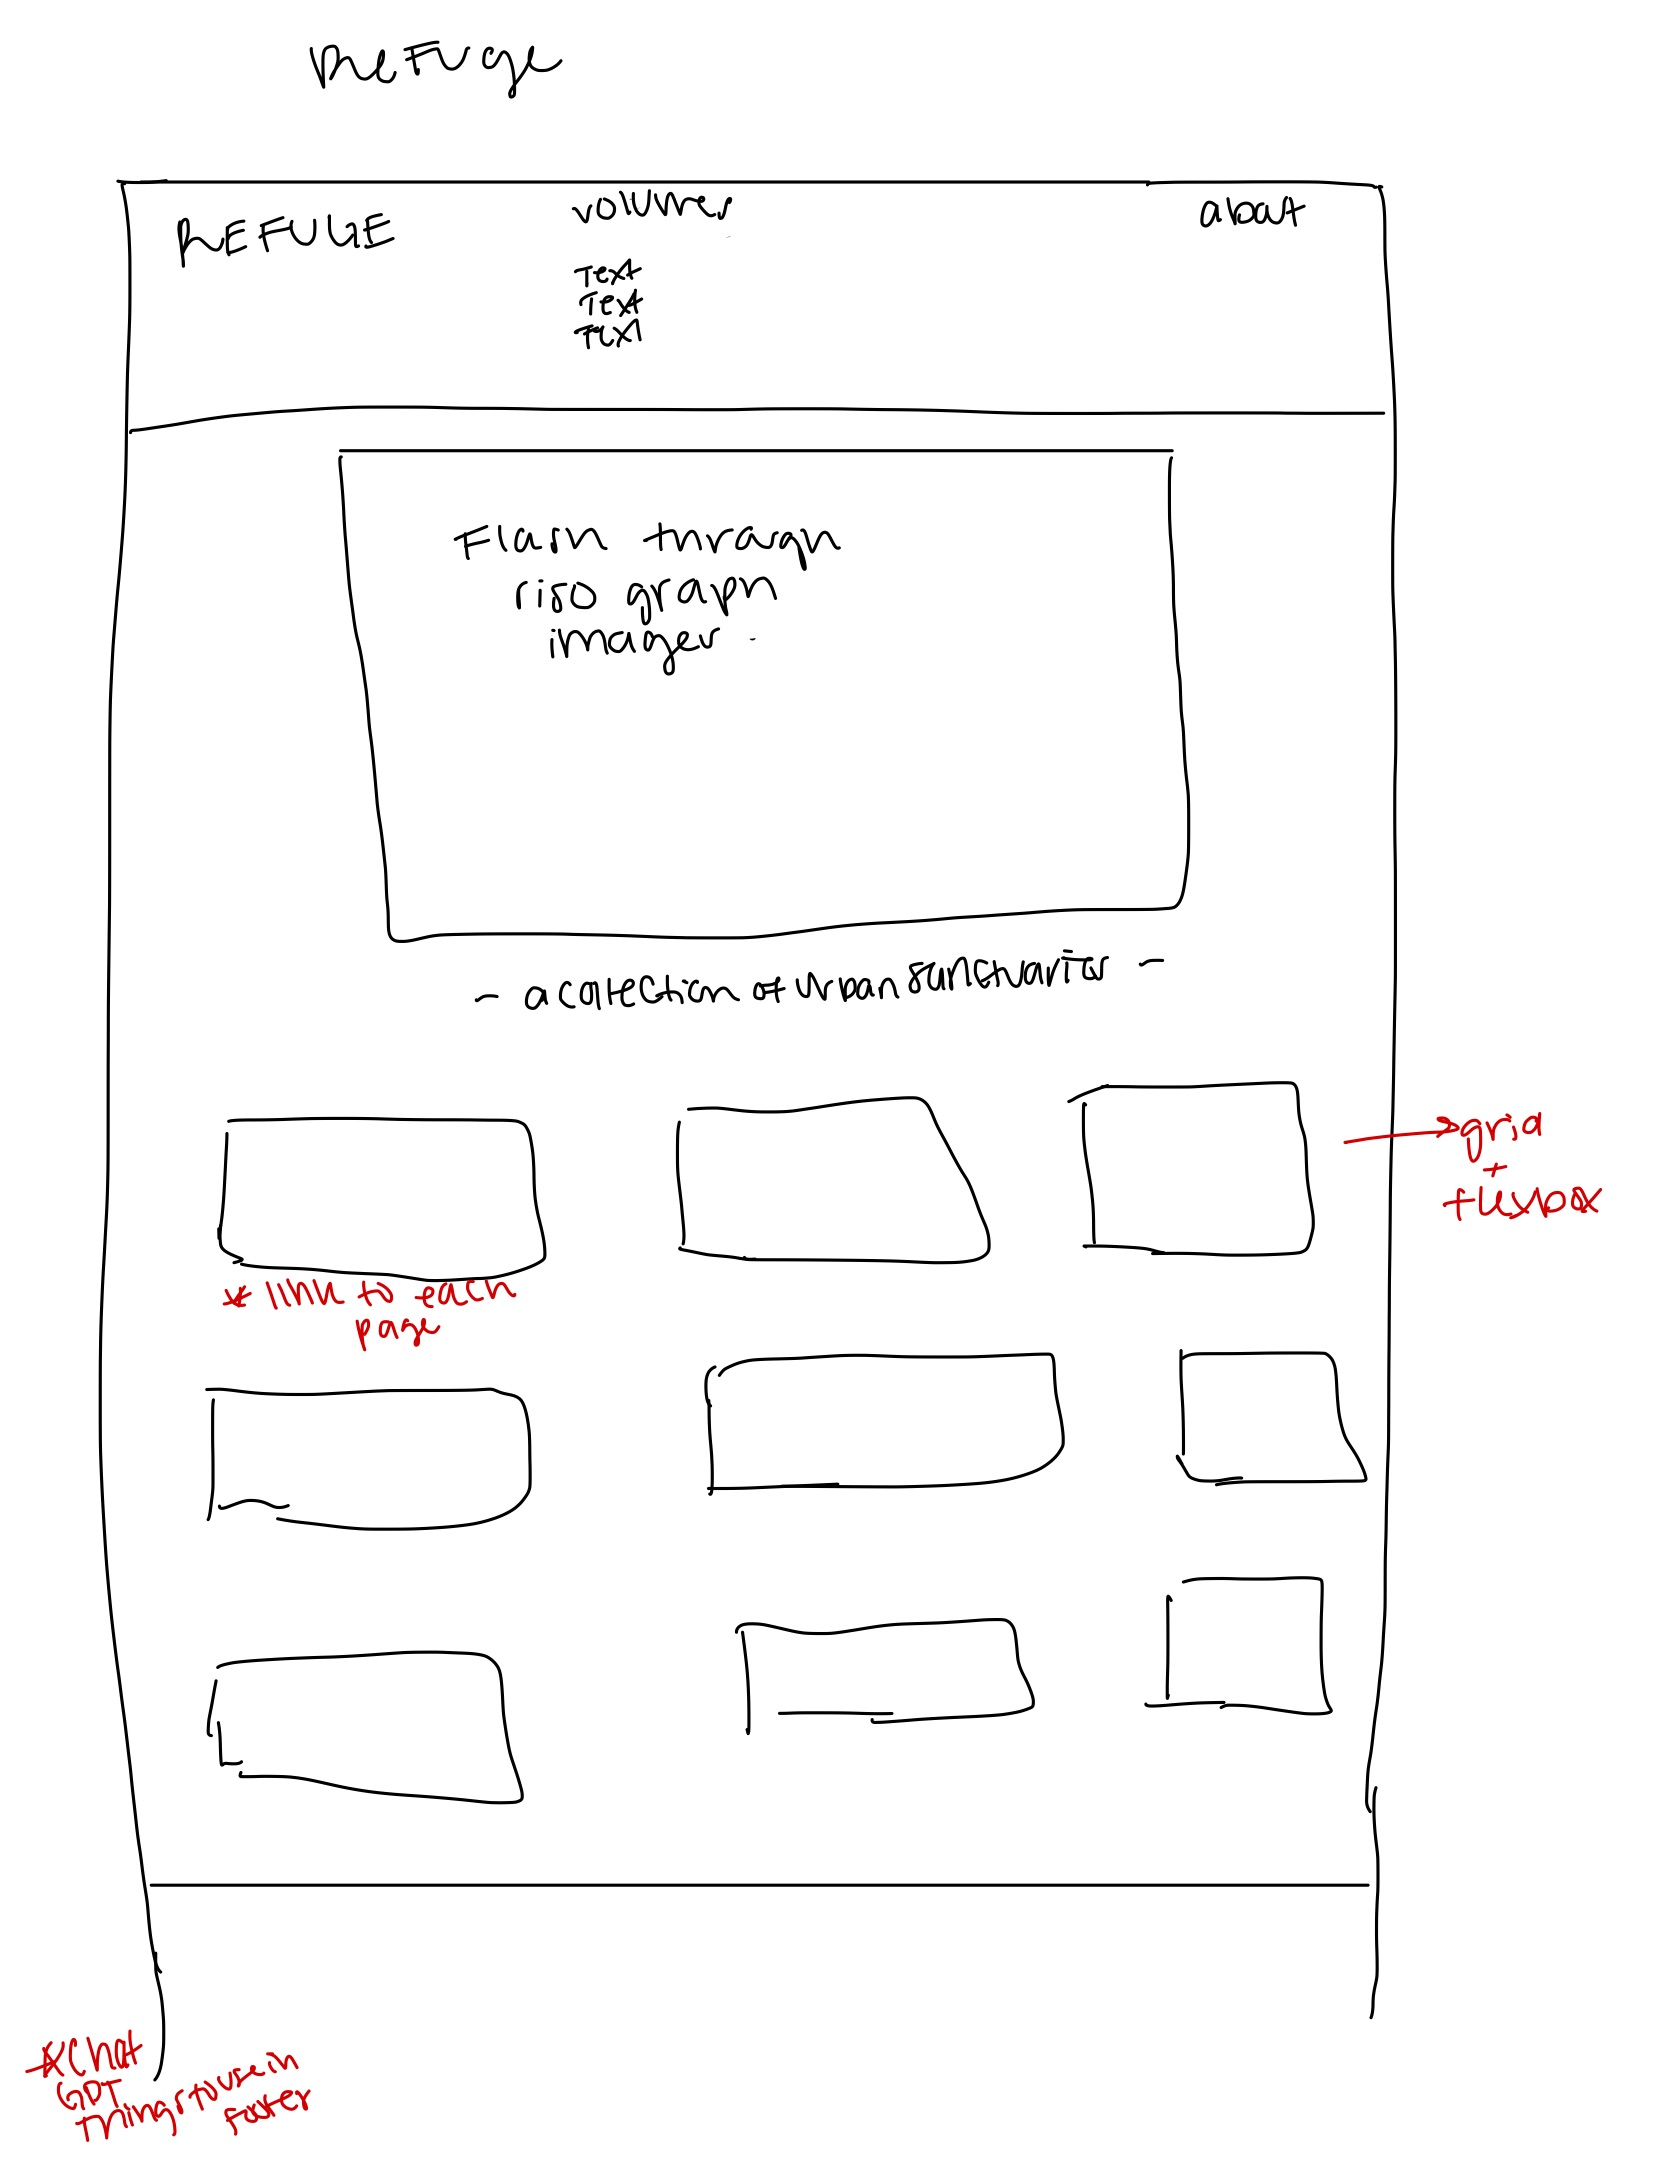 Refuge
REFUGE
volumes
about
Text
Text
Text
Flash through
riso graph
images.
- a collection of urban sanctuaries -
→ grid
+
flexbox
* link to each
page
*Chat
GPT
things to use in
footer